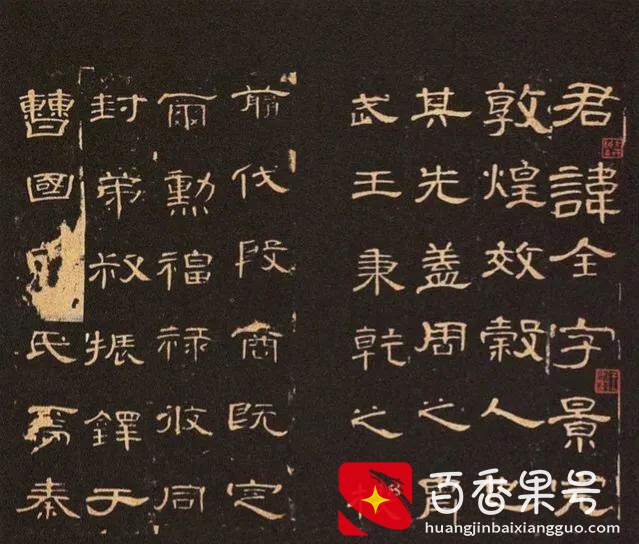 君諱全字景完
敦煌效穀人
其先蓋周之
武王秉乾之
翦伐殷商既定
爾勳福祿攸同
封弟叔振鐸于
曹國氏焉秦
百香果号
huangjinbaixiangguo.com